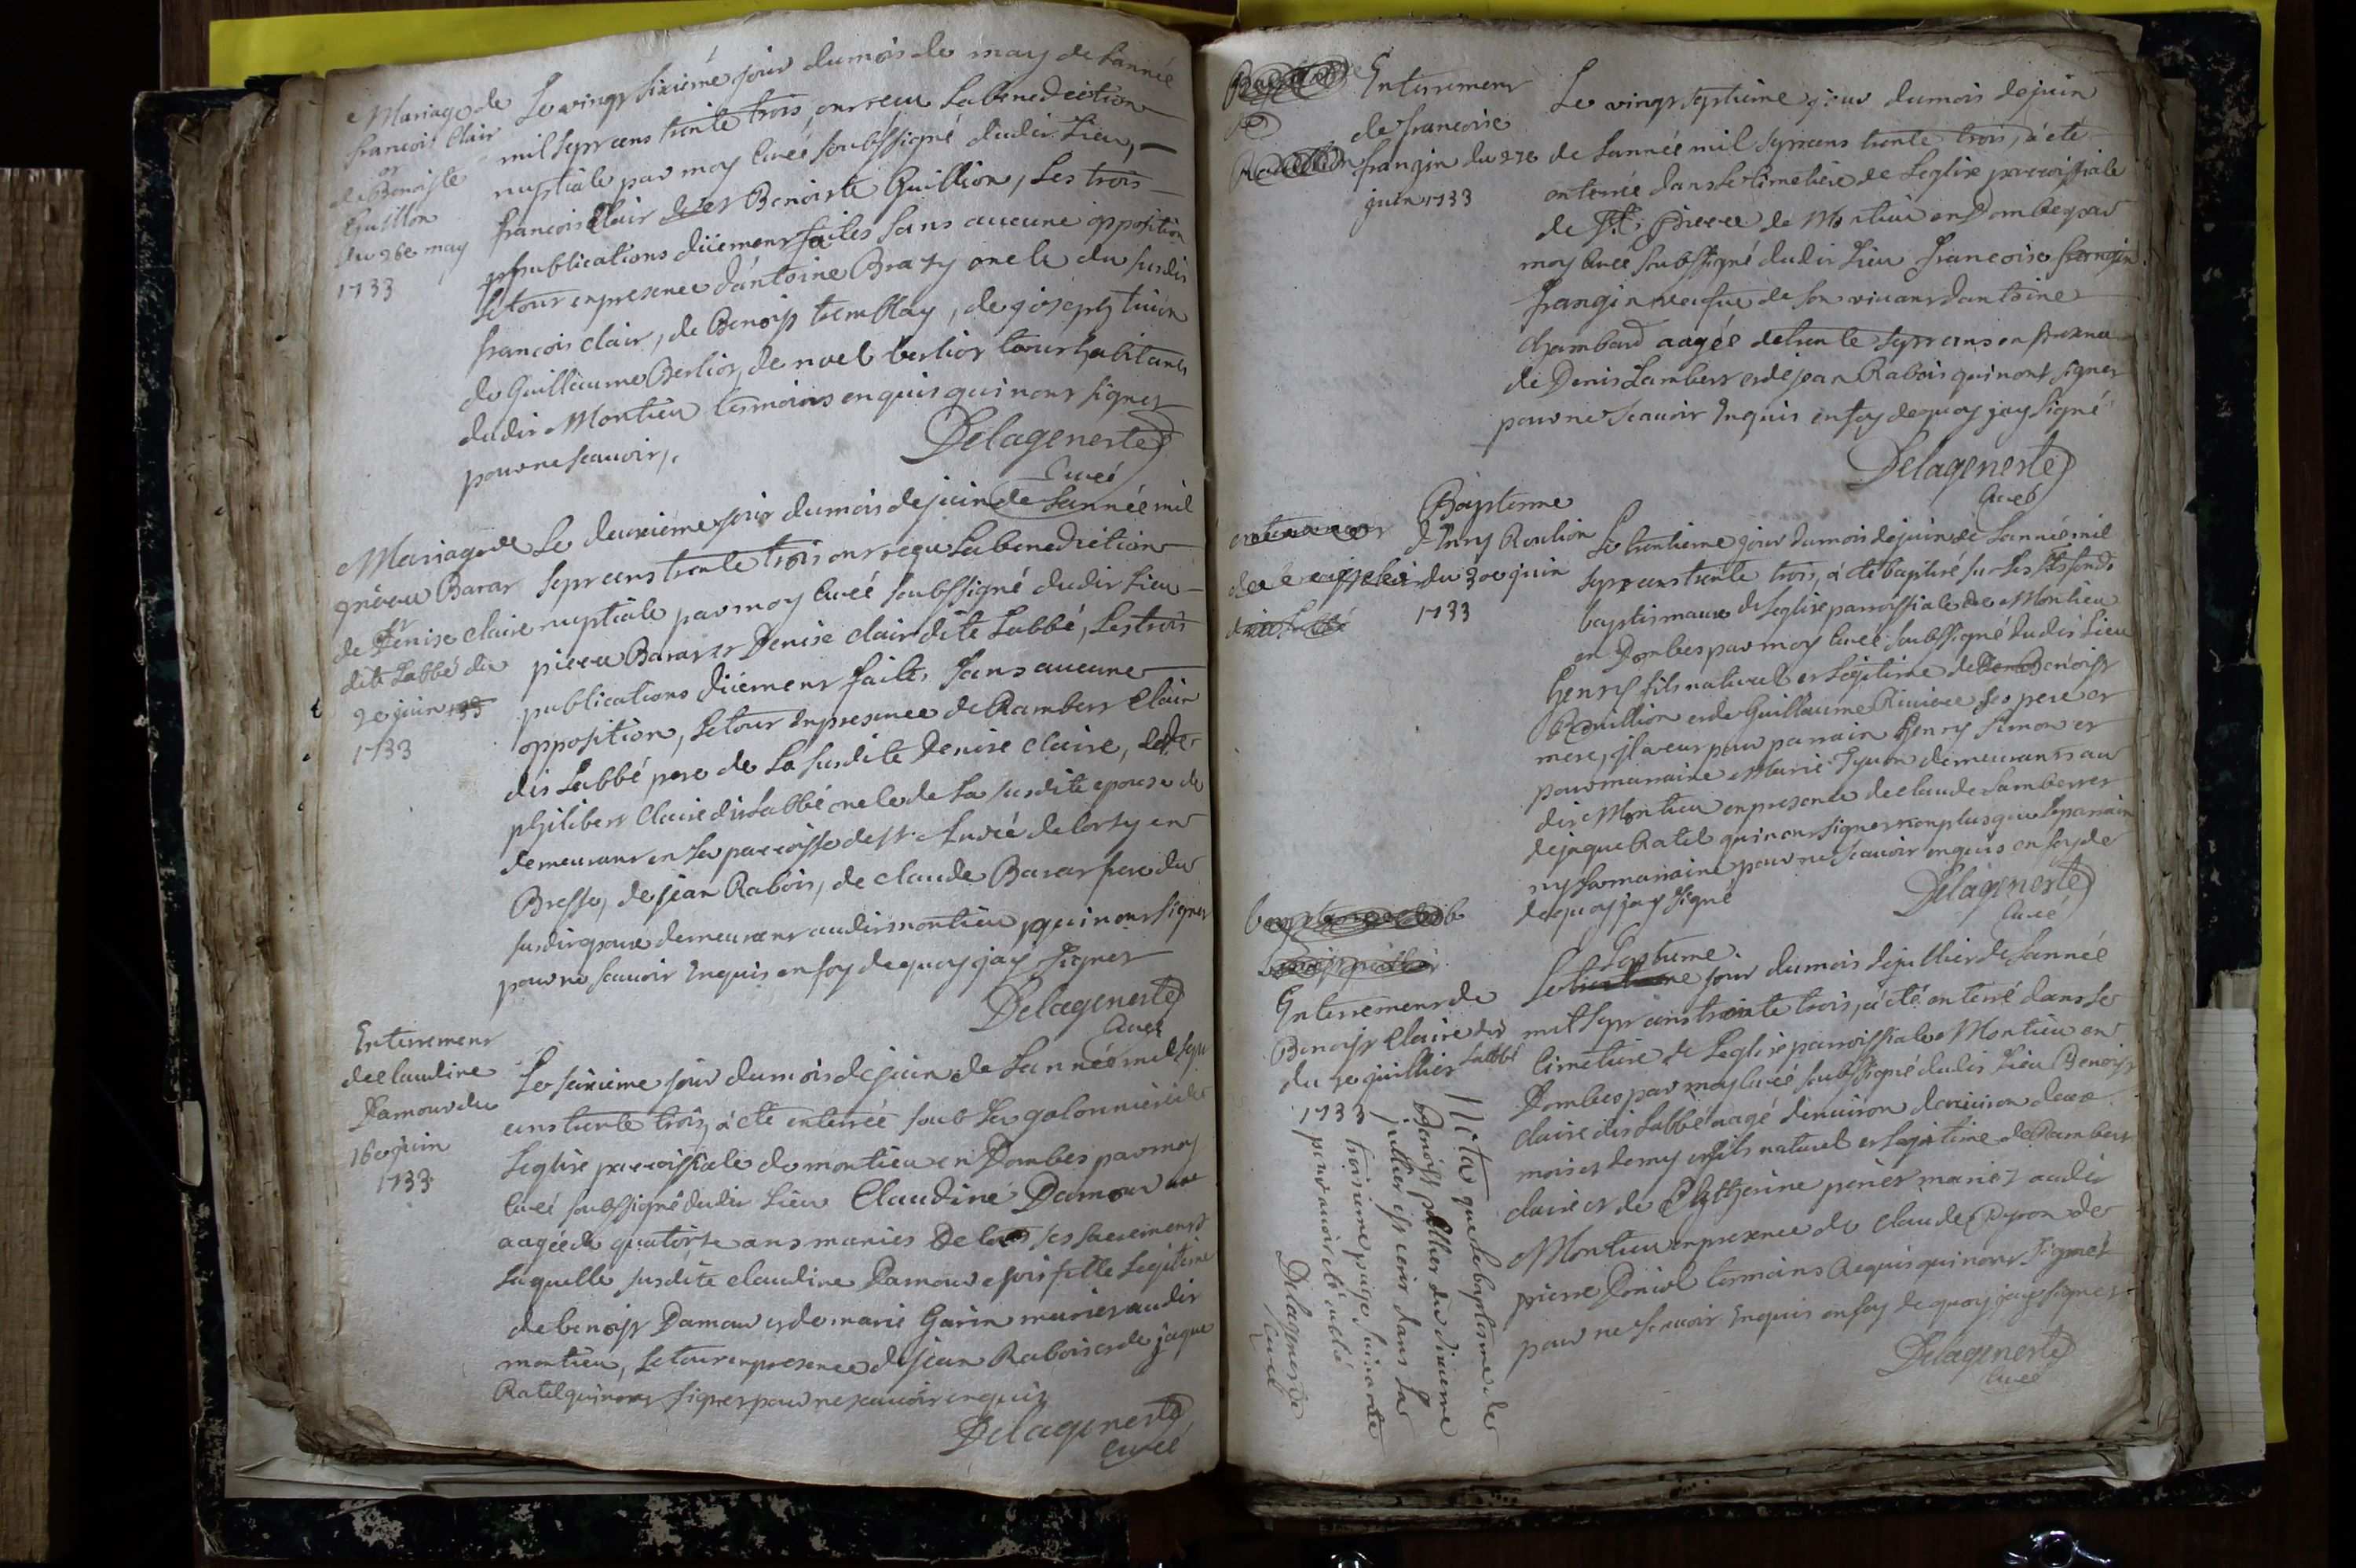 Mariage de
francois Clair
et
de Benoiste
Guillon
du 26e may
1733
Le vingt sixieme jour du mois de may de Lannée
mil sept cens trente trois, ont receu La benediction
nuptiale par moy Curé soubssigné dudit Lieu,
francois Clair et Benoiste Guillion, Les trois
publications düement faites sans aucune opposition
Le tout en presence d'antoine Brazy oncle du susdit
francois clair, de Benoist tremblay, de joseph
de Guillaume Berlioz, de noel berlioz tous habitants
dudit Montieu temoins enquis qui n'ont signer
pour ne scauoir,.
Delageneste
Curé
Mariage de
Barar
et
de Denise Claire
dite Labbé du
2e juin
1733
Le deuxieme jour du mois de juin de Lannée mil
sept cens trente trois ont reçu La benediction
nuptiale par moy Curé soubssigné dudit Lieu
pierre Barar et Denise clair dite Labbé, Les trois
publications düement faites sans aucune
opposition, Le tout en presence de Rambert Clair
dit Labbé pere de La susdite Denise Claire, de
philibert Claire dit Labbé oncle de La susdite epouse de
demeurant en La parroisse de st. André de Corsy en
Bresse, de jean Rabois, de claude Barar pere du
susdit epoux demeurant audit montieu qui n'ont signer
pour ne scauoir Enquis en foy de quoy jay signer
Delageneste
Curé
Enterrement
de claudine
Damour du
16e juin
1733
Le seizieme jour du mois de juin de Lannée mil sept
cens trente trois, à été enterrée soub La galonniere de
Leglise parroissiale de montieu en Dombes par moy
Curé soubssigné dudit Lieu Claudine Damour
aagée de quatorze ans munies De ses sacrements
Laquelle susdite claudine Damour etoit fille Legitime
de benoist Damour et de marie Garin mariez audit
montieu, Le tout en presence de jean Rabois et de jaque
Ratel qui n'ont signer pour ne scauoir enquis
Delageneste
Curé
Enterrement
de francoise
frangin du 27e
juin 1733
Le vingt septieme jour du mois de juin
de Lannée mil sept cens trente trois, à eté
enterrée dans Le Cimetiere de Leglise parroissiale
de St. Pierre de Montieu en Dombes par
moy Curé soubssigné dudit Lieu francoise
frangin veufue de son viuant d'antoine
Chambard aagée de trente sept ans en presence
de Denis Lambert et de jean Rabois qui n'ont signer
pour ne scauoir Enquis en foy de quoy jay signé
Delageneste
Curé
Bapteme
d'henry Roulion
du 30e juin
1733
Le trentieme jour du mois de juin de Lannée mil
sept cens trente trois, à eté baptisé sur Les sts fonds
baptismaux de Leglise parroissiale de Montieu
en Dombes par moy Curé soubssigné dudit Lieu
henry fils naturel et Legitime de Benoist
Roullion et de Guillaume Riuiere ses pere et
mere, il a eut pour parrain henry Simon et
pour marraine Marie Tyuon demeurants au
dit Montieu en presence de claude Lambert et
de jaque Ratel qui n'ont signer non plus que Le parrain
ny La marraine pour ne scauoir enquis en foy de
de quoy jay signé
Delageneste
Curé
Enterrement de
Benoist Claire dit
Labbé
du 7e juillier
1733
septieme
Le jour du mois de juillier de Lannée
mil sept cens trente trois, à eté enterré dans Le
Cimetiere de Leglise parroissiale Montieu en
Dombes par moy Curé soubssigné dudit Lieu Benoist
Claire dit Labbé aagé d'enuiron deux
mois et demy fils naturel et Legitime de Rambert
claire et de Catherine mariez audit
Montieu en presence de claude Pyron de
pierre Doniol temoins Requis qui n'ont signer
pour ne scauoir Enquis en foy de quoy jay signer
Delageneste
Curé
Nota que Le bapteme de
benoist du dixieme
juillier est ecrit dans La
troisieme page suiuante
pour auoir eté oublié
Delageneste
Curé